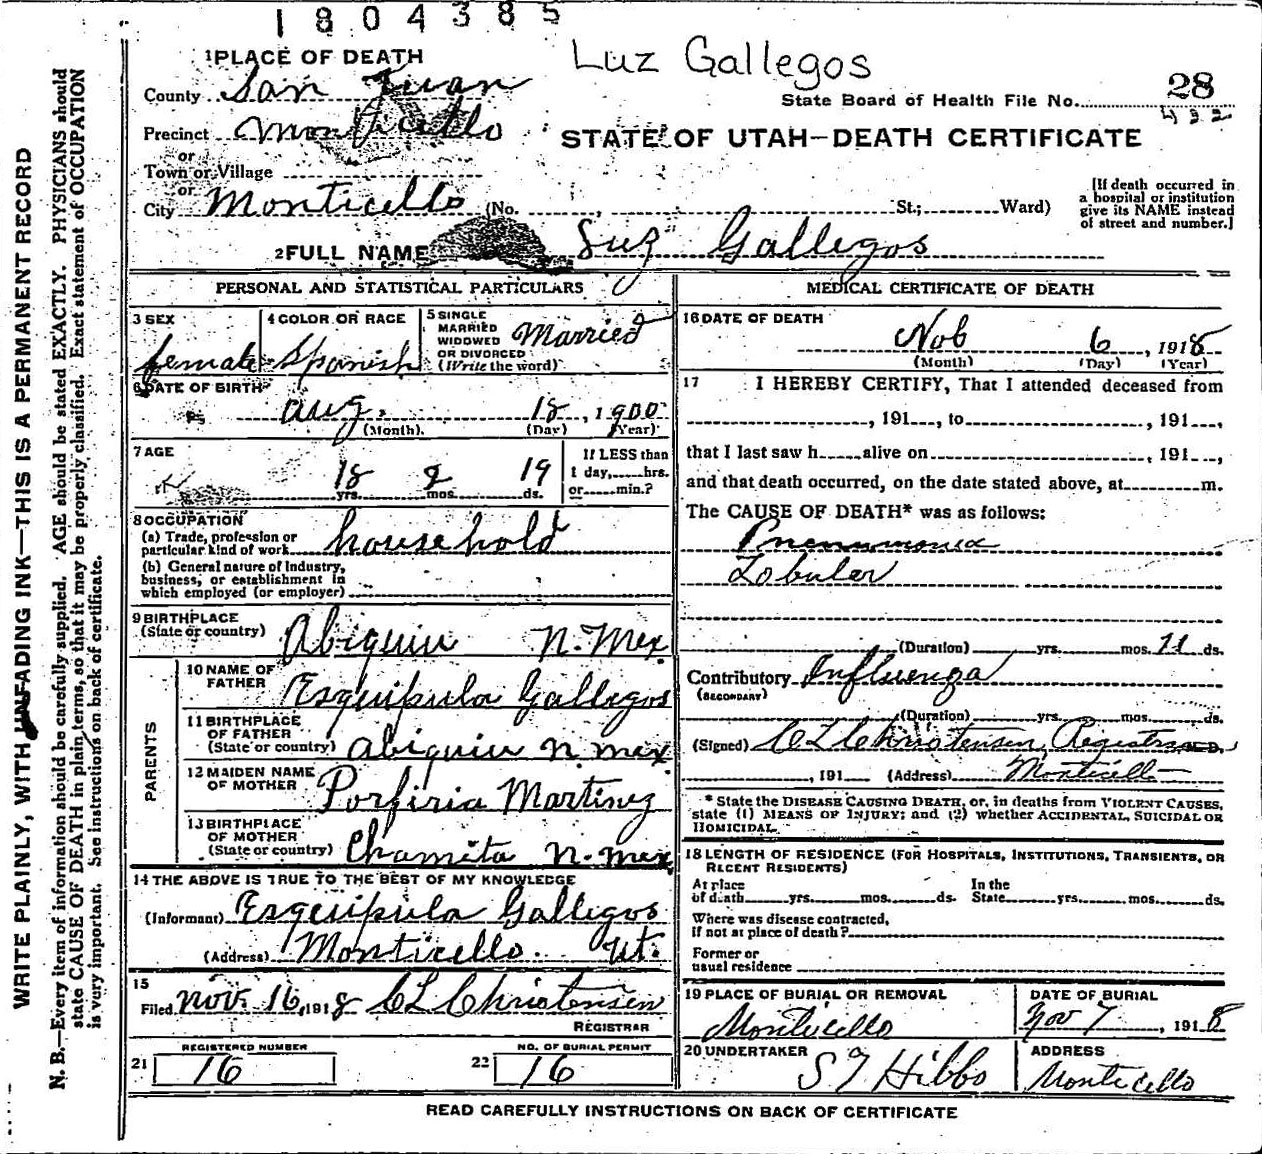 1804385
Luz Gallegos
1 PLACE OF DEATH
County San Juan
28
State Board of Health File No.
432
Precinct Monticello
STATE OF UTAH—DEATH CERTIFICATE
or
Town or Village
or
City Monticello (No. St.; Ward)
[If death occurred in
a hospital or institution
give its NAME instead
of street and number.]
2 FULL NAME Luz Gallegos
PERSONAL AND STATISTICAL PARTICULARS
3 SEX
female
4 COLOR OR RACE
Spanish
5 SINGLE
MARRIED
WIDOWED
OR DIVORCED
(Write the word)
Married
6 DATE OF BIRTH
Aug. 18, 1900
(Month) (Day) (Year)
7 AGE
18 yrs. 2 mos. 19 ds.
If LESS than
1 day, hrs.
or min.?
8 OCCUPATION
(a) Trade, profession or
particular kind of work household
(b) General nature of Industry,
business, or establishment in
which employed (or employer)
9 BIRTHPLACE
(State or country) Abiquiu N. Mex.
PARENTS
10 NAME OF
FATHER Esquipula Gallegos
11 BIRTHPLACE
OF FATHER
(State or country) Abiquiu N. Mex
12 MAIDEN NAME
OF MOTHER Porfiria Martinez
13 BIRTHPLACE
OF MOTHER
(State or country) Chamita N. Mex
14 THE ABOVE IS TRUE TO THE BEST OF MY KNOWLEDGE
(Informant) Esquipula Gallegos
(Address) Monticello. Ut.
15
Filed Nov. 16, 1918 C L Christensen
REGISTRAR
REGISTERED NUMBER
21 16
NO. OF BURIAL PERMIT
22 16
MEDICAL CERTIFICATE OF DEATH
16 DATE OF DEATH
Nob 6, 1918
(Month) (Day) (Year)
17 I HEREBY CERTIFY, That I attended deceased from
, 191 , to , 191 ,
that I last saw h alive on , 191 ,
and that death occurred, on the date stated above, at m.
The CAUSE OF DEATH* was as follows:
Pneumonia
Lobular
(Duration) yrs. mos. 11 ds.
Contributory Influenza
(SECONDARY)
(Duration) yrs. mos. ds.
(Signed) C L Christensen, Registrar M.D.
, 191 (Address) Monticello
* State the DISEASE CAUSING DEATH, or, in deaths from VIOLENT CAUSES,
state (1) MEANS OF INJURY; and (2) whether ACCIDENTAL, SUICIDAL OR
HOMICIDAL.
18 LENGTH OF RESIDENCE (FOR HOSPITALS, INSTITUTIONS, TRANSIENTS, OR
RECENT RESIDENTS)
At place
of death yrs. mos. ds.
In the
State yrs. mos. ds.
Where was disease contracted,
if not at place of death?
Former or
usual residence
19 PLACE OF BURIAL OR REMOVAL
Monticello
DATE OF BURIAL
Nov 7, 1918
20 UNDERTAKER
S T Hibbs
ADDRESS
Monticello
READ CAREFULLY INSTRUCTIONS ON BACK OF CERTIFICATE
WRITE PLAINLY, WITH UNFADING INK—THIS IS A PERMANENT RECORD
N. B.—Every item of information should be carefully supplied. AGE should be stated EXACTLY. PHYSICIANS should
state CAUSE OF DEATH in plain terms, so that it may be properly classified. Exact statement of OCCUPATION
is very important. See instructions on back of certificate.